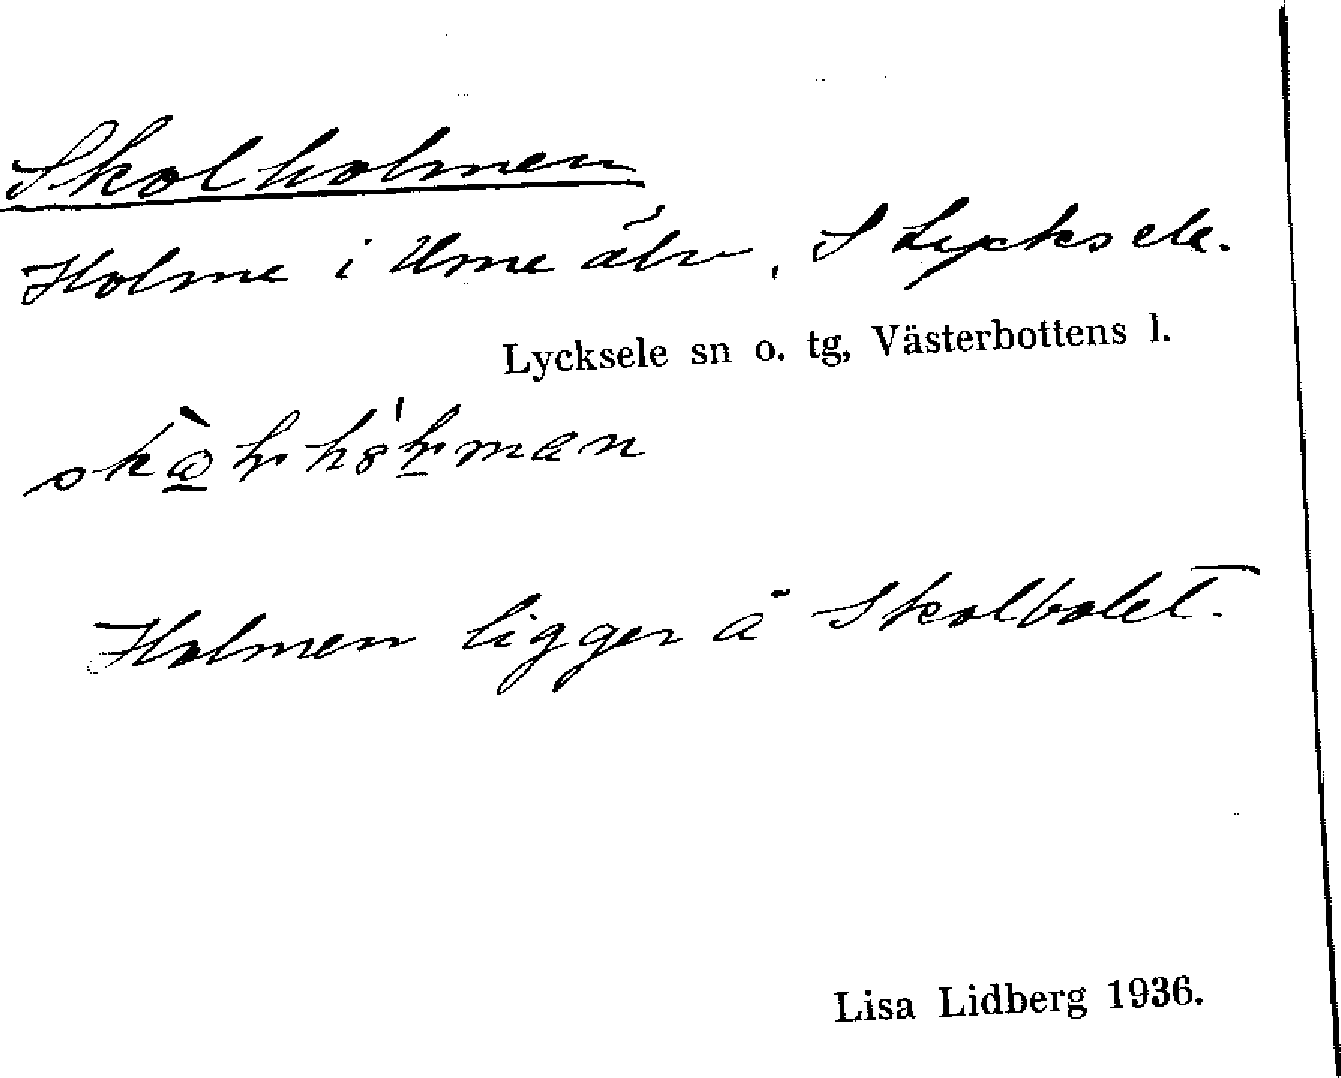 Skolholmen
Holme i Ume älv, S Lycksele.
Lycksele sn o. tg, Västerbottens l.
Holmen ligger å Skolbolet.
Lisa Lidberg 1936.